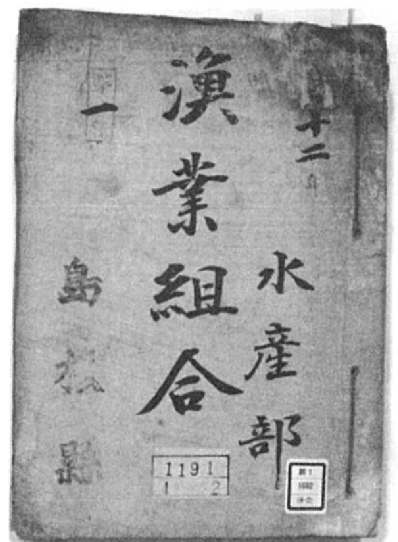 十二年
水産部
漁業組合
一
島根縣
1191
1 2